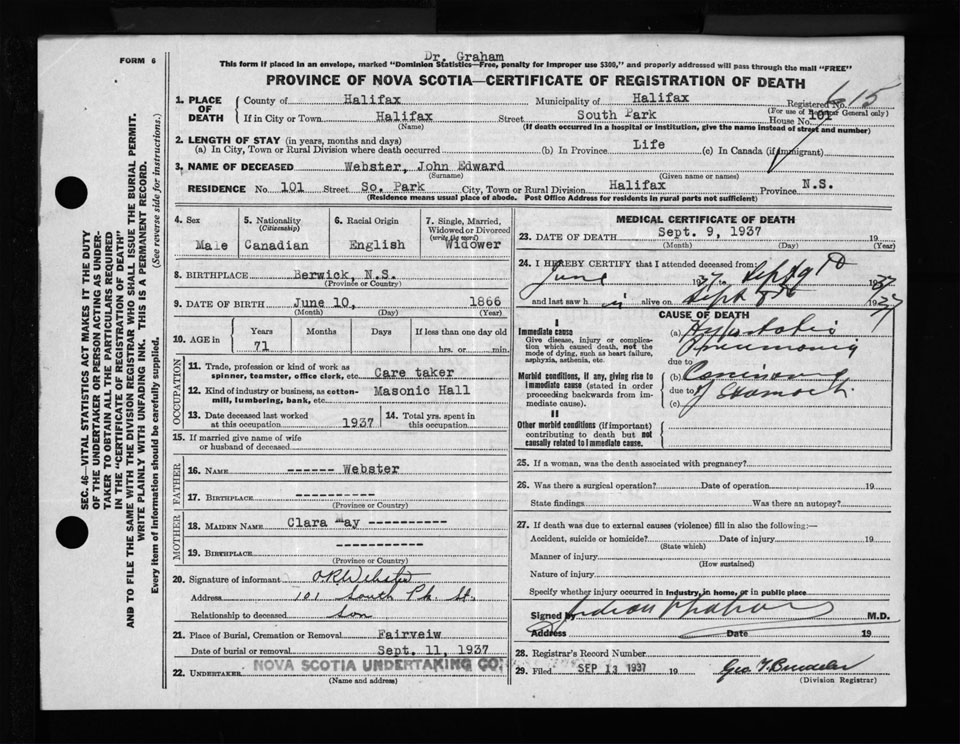 Dr. Graham
FORM 6
This form if placed in an envelope, marked "Dominion Statistics—Free, penalty for improper use $300," and properly addressed will pass through the mail "FREE"
PROVINCE OF NOVA SCOTIA—CERTIFICATE OF REGISTRATION OF DEATH
SEC. 46—VITAL STATISTICS ACT MAKES IT THE DUTY
OF THE UNDERTAKER OR PERSON ACTING AS UNDER-
TAKER TO OBTAIN ALL THE PARTICULARS REQUIRED
IN THE "CERTIFICATE OF REGISTRATION OF DEATH"
AND TO FILE THE SAME WITH THE DIVISION REGISTRAR WHO SHALL ISSUE THE BURIAL PERMIT.
WRITE PLAINLY WITH UNFADING INK. THIS IS A PERMANENT RECORD.
Every item of information should be carefully supplied. (See reverse side for instructions.)
1. PLACE OF DEATH
County of Halifax Municipality of Halifax Registered No. 615
(For use of Registrar General only)
If in City or Town Halifax Street South Park House No. 101
(Name) (If death occurred in a hospital or institution, give the name instead of street and number)
2. LENGTH OF STAY (in years, months and days)
(a) In City, Town or Rural Division where death occurred (b) In Province Life (c) In Canada (if immigrant)
3. NAME OF DECEASED Webster, John Edward
(Surname) (Given name or names)
RESIDENCE No. 101 Street So. Park City, Town or Rural Division Halifax Province N.S.
(Residence means usual place of abode. Post Office Address for residents in rural parts not sufficient)
4. Sex Male
5. Nationality (Citizenship) Canadian
6. Racial Origin English
7. Single, Married, Widowed or Divorced (write the word) Widower
8. BIRTHPLACE Berwick, N.S.
(Province or Country)
9. DATE OF BIRTH June 10, 1866
(Month) (Day) (Year)
10. AGE in Years 71 Months Days If less than one day old
hrs. or min.
OCCUPATION
11. Trade, profession or kind of work as spinner, teamster, office clerk, etc. Care taker
12. Kind of industry or business, as cotton-mill, lumbering, bank, etc. Masonic Hall
13. Date deceased last worked at this occupation 1937
14. Total yrs. spent in this occupation
15. If married give name of wife or husband of deceased
FATHER
16. NAME ------ Webster
17. BIRTHPLACE ----------
(Province or Country)
MOTHER
18. MAIDEN NAME Clara May ----------
19. BIRTHPLACE ----------
(Province or Country)
20. Signature of informant O.R. Webster
Address 101 South Pk. St.
Relationship to deceased Son
21. Place of Burial, Cremation or Removal Fairveiw
Date of burial or removal Sept. 11, 1937
22. UNDERTAKER NOVA SCOTIA UNDERTAKING CO.
(Name and address)
MEDICAL CERTIFICATE OF DEATH
23. DATE OF DEATH Sept. 9, 1937 19
(Month) (Day) (Year)
24. I HEREBY CERTIFY that I attended deceased from:
June 1937 to Sept 9th 1937
and last saw h im alive on Sept 8th 1937
CAUSE OF DEATH
I
Immediate cause
Give disease, injury or complication which caused death, not the mode of dying, such as heart failure, asphyxia, asthenia, etc.
(a) Hypostatic Pneumonia
due to
Morbid conditions, if any, giving rise to immediate cause (stated in order proceeding backwards from immediate cause).
(b) Carcinoma of Stomach
due to
(c)
II
Other morbid conditions (if important) contributing to death but not causally related to immediate cause.
25. If a woman, was the death associated with pregnancy?
26. Was there a surgical operation? Date of operation 19
State findings Was there an autopsy?
27. If death was due to external causes (violence) fill in also the following:—
Accident, suicide or homicide? Date of injury 19
(State which)
Manner of injury
(How sustained)
Nature of injury
Specify whether injury occurred in industry, in home, or in public place
Signed by M.D.
Address Date 19
28. Registrar's Record Number
29. Filed SEP 13 1937 19
(Division Registrar)